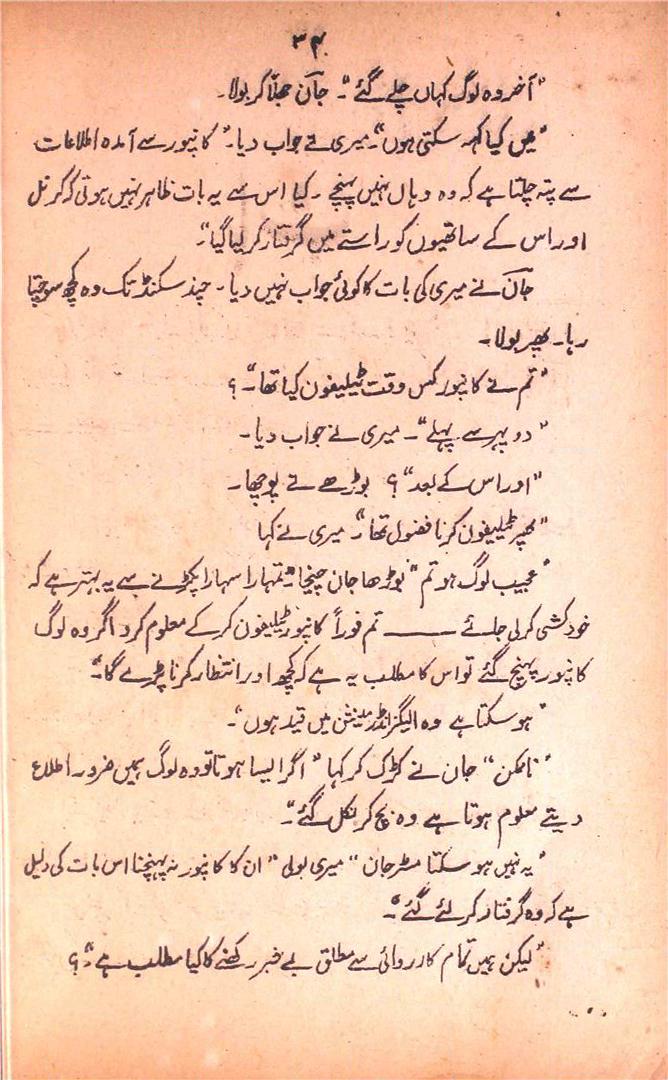 ۳۴
"آخر وہ لوگ کہاں چلے گئے"۔ جان جھلّا کر بولا۔
"میں کیا کہہ سکتی ہوں"۔ میری نے جواب دیا۔ "کانپور سے آمدہ اطلاعات
سے پتہ چلتا ہے کہ وہ وہاں نہیں پہنچے۔ کیا اس سے یہ بات ظاہر نہیں ہوتی کہ کرنل
اور اس کے ساتھیوں کو راستے میں گرفتار کر لیا گیا"۔
جان نے میری کی بات کا کوئی جواب نہیں دیا۔ چند سکنڈ تک وہ کچھ سوچتا
رہا۔ پھر بولا۔
"تم نے کانپور کس وقت ٹیلیفون کیا تھا"۔ ؟
"دوپہر سے پہلے"۔ میری نے جواب دیا۔
"اور اس کے بعد"؟ بوڑھے نے پوچھا۔
"پھر ٹیلیفون کرنا فضول تھا"۔ میری نے کہا
"عجیب لوگ ہو تم" بوڑھا جان چیخا "تمہارا سہارا پکڑنے سے یہ بہتر ہے کہ
خودکشی کر لی جائے ——— تم فوراً کانپور ٹیلیفون کر کے معلوم کرو اگر وہ لوگ
کانپور پہنچ گئے تو اس کا مطلب یہ ہے کہ کچھ اور انتظار کرنا پڑے گا"۔
"ہو سکتا ہے وہ الیگزانڈر مینشن میں قید ہوں"۔
"ناممکن" جان نے کڑک کر کہا "اگر ایسا ہوتا تو وہ لوگ ہمیں ضرور اطلاع
دیتے معلوم ہوتا ہے وہ بچ کر نکل گئے"۔
"یہ نہیں ہو سکتا مسٹر جان" میری بولی "ان کا کانپور نہ پہنچنا اس بات کی دلیل
ہے کہ وہ گرفتار کر لئے گئے"۔
"لیکن ہمیں تمام کارروائی سے مطلق بے خبر رکھنے کا کیا مطلب ہے"۔ ؟